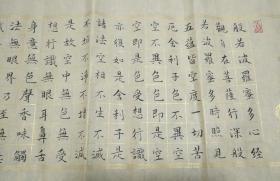 般若波羅蜜多心經
觀自在菩薩行深般
若波羅蜜多時照見
五蘊皆空度一切苦
厄舍利子色不異空
空不異色色即是空
空即是色受想行識
亦復如是舍利子是
諸法空相不生不滅
不垢不淨不增不減
是故空中無色無受
想行識無眼耳鼻舌
身意無色聲香味觸
法無眼界乃至無